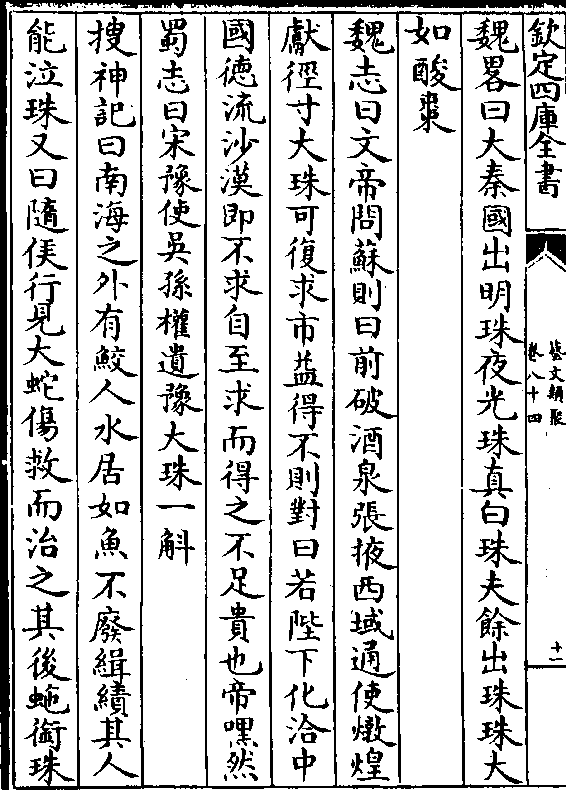 欽定四庫全書
藝文類聚
卷八十四
十一
魏畧曰大秦國出明珠夜光珠真白珠夫餘出珠珠大
如酸棗
魏志曰文帝問蘇則曰前破酒泉張掖西域通使燉煌
獻徑寸大珠可復求市益得不則對曰若陛下化洽中
國德流沙漠即不求自至求而得之不足貴也帝嘿然
蜀志曰宋豫使吳孫權遺豫大珠一斛
搜神記曰南海之外有鮫人水居如魚不廢緝績其人
能泣珠又曰隨侯行見大蛇傷救而治之其後虵銜珠